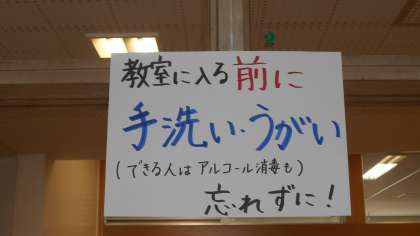 2
教室に入る前に
手洗い・うがい
(できる人はアルコール消毒も)
忘れずに!